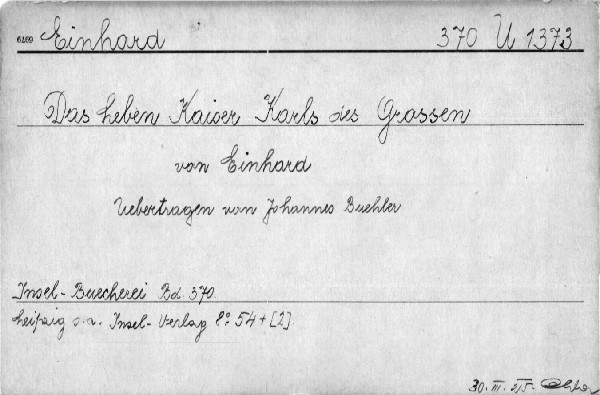 6709 Einhard 370 U 1373
Das Leben Kaiser Karls des Grossen
von Einhard
Uebertragen von Johannes Buehler
Insel-Buecherei Bd. 370.
Leipzig o.a. Insel-Verlag 8° 54+[2].
30. III. 25.